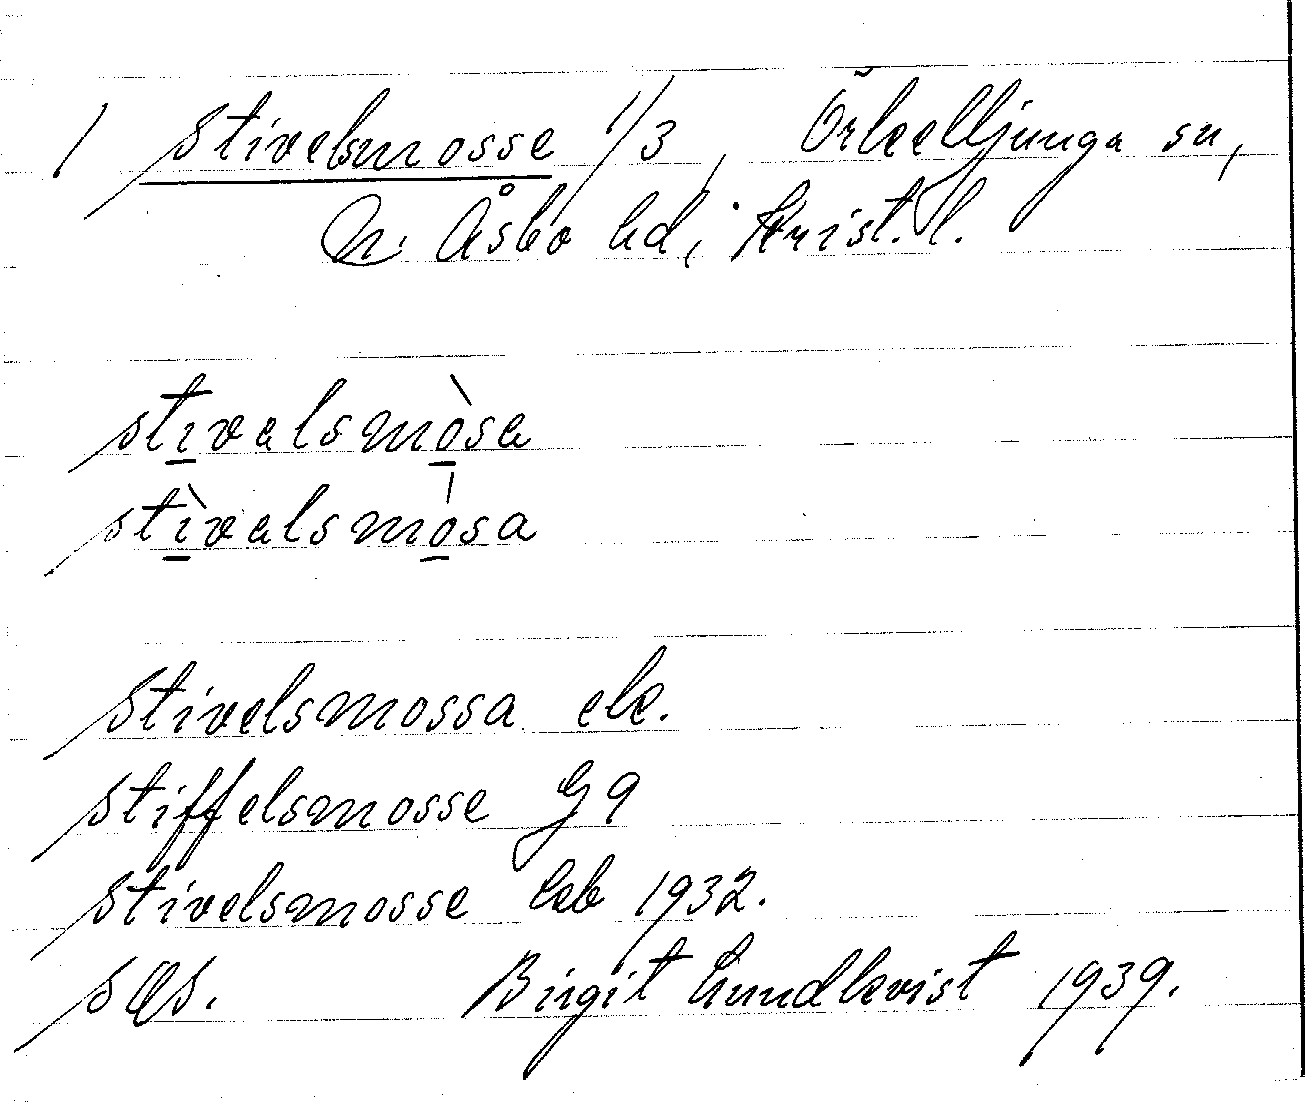 / Stivelsmosse 1/3, Örkelljunga sn,
N. Åsbo hd, Krist. l.
stivalsmòsa
stìvalsmósa
Stivelsmossa ek.
Stiffelsmosse G9
Stivelsmosse Lsb 1932.
Birgit Lundkvist 1939.